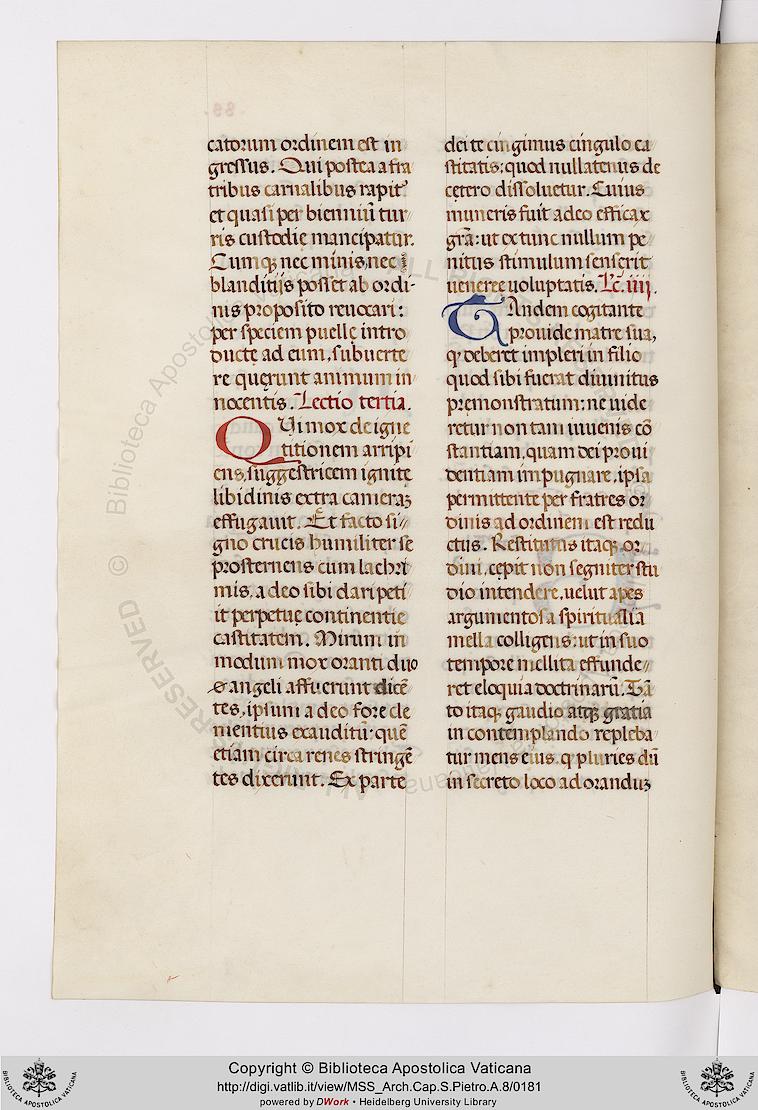 catorum ordinem est in
gressus. Qui postea a fra
tribus carnalibus rapit᷒
et quasi per bienniū tur⸗
ris custodię mancipatur.
Cumq; nec minis, nec
blanditijs posset ab ordi-
nis proposito reuocari:
per speciem puellę intro
ductę ad eum, subuerte
re quęrunt animum in⸗
nocentis. Lectio tertia.
QVi mox de igne
titionem arripi
ens, suggestricem ignitę
libidinis extra cameraꝫ
effugauit. Et facto si⸗
gno crucis humiliter se
prosternens cum lachri
mis, a deo sibi dari peti
it perpetuę continentie
castitatem. Mirum in
modum mox oranti duo
angeli affuerunt dicē
tes, ipsum a deo fore cle
mentius exauditū: quē
etiam circa renes stringē
tes dixerunt. Ex parte
dei te cingimus cingulo ca
stitatis: quod nullatenus de
cętero dissoluetur. Cuius
muneris fuit adeo efficax
gr̄a: ut ex tunc nullum pe⸗
nitus stimulum senserit
ueneree uoluptatis. Lc̄. iiij.
TAndem cogitante
prouide matre sua,
ꝙ deberet impleri in filio
quod sibi fuerat diuinitus
premonstratum: ne uide
retur non tam iuuenis cō
stantiam, quam dei proui
dentiam impugnare, ipsa
permittente per fratres or
dinis ad ordinem est redu
ctus. Restitutus itaq; or
dini, cępit non segniter stu
dio intendere, uelut apes
argumentosa spiritualia
mella colligens: ut in suo
tempore mellita effunde⸗
ret eloquia doctrinarū. Tā
to itaq; gaudio atq; gratia
in contemplando repleba⸗
tur mens eius, ꝙ pluries dū
in secreto loco ad oranduꝫ
Copyright © Biblioteca Apostolica Vaticana
http://digi.vatlib.it/view/MSS_Arch.Cap.S.Pietro.A.8/0181
powered by DWork • Heidelberg University Library